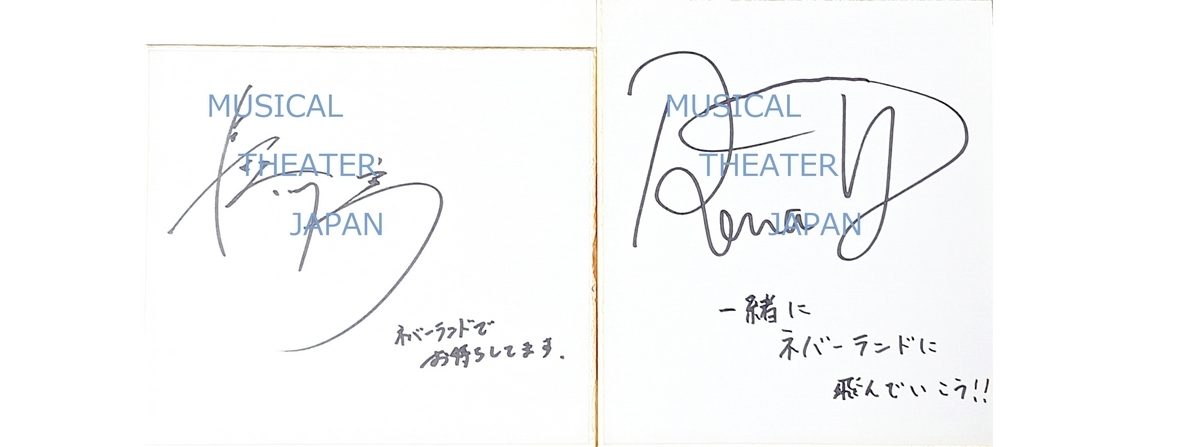 MUSICAL
THEATER
JAPAN
ネバーランドで
お待ちしてます.
MUSICAL
THEATER
JAPAN
Rena
一緒に
ネバーランドに
飛んでいこう!!